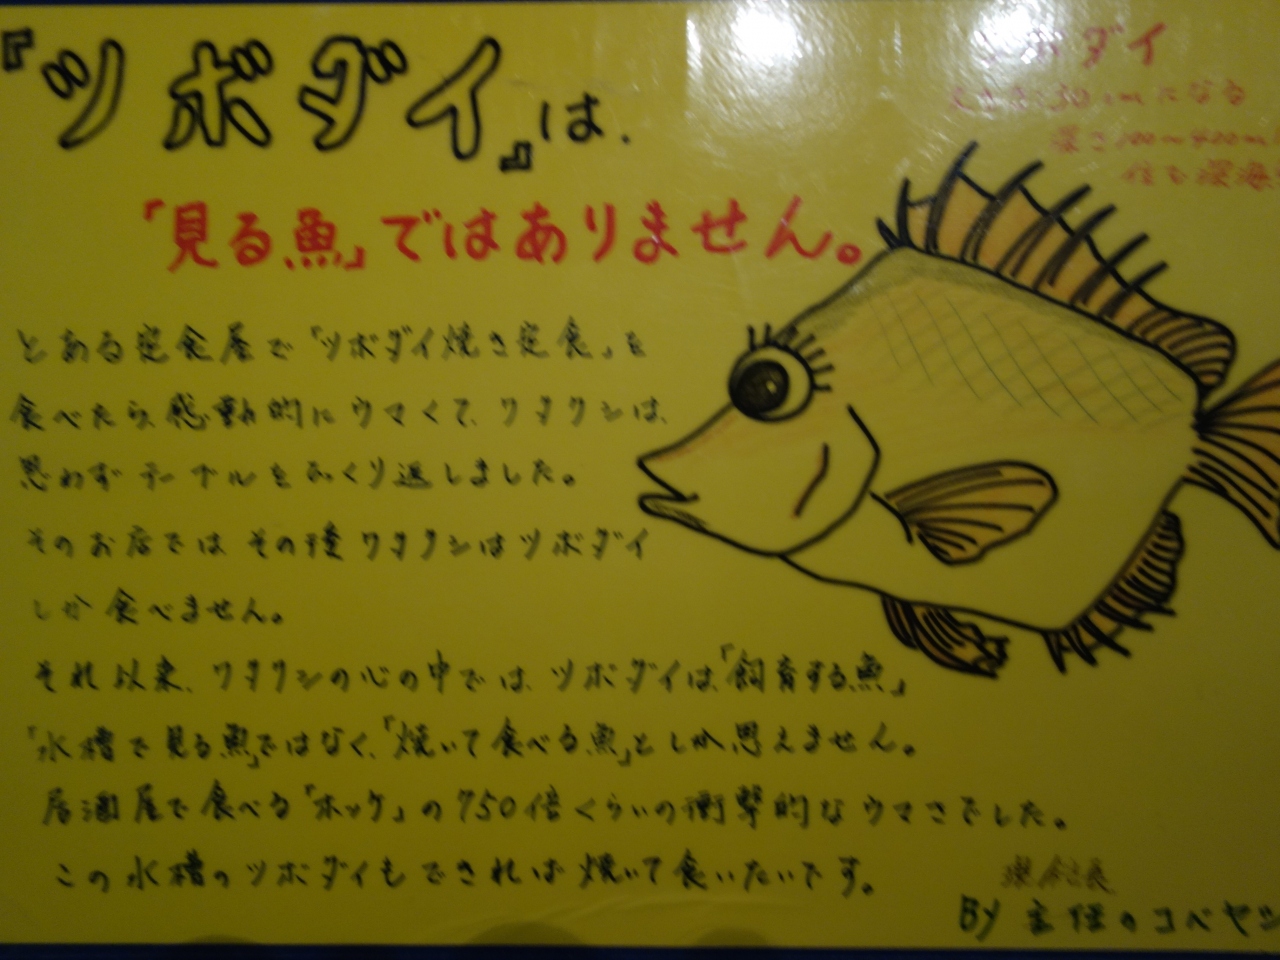 『ツボダイ』は、
「見る魚」ではありません。
ダイ
大きさ:30cmになる
深さ100~400m
住む深海
とある定食屋で「ツボダイ焼き定食」を
食べたら、感動的にウマくて、ワタクシは、
思わずテーブルをひっくり返しました。
そのお店では その後 ワタクシはツボダイ
しか食べません。
それ以来、ワタクシの心の中では、ツボダイは、「飼育する魚」
「水槽で見る魚」ではなく、「焼いて食べる魚」としか思えません。
居酒屋で食べる「ホッケ」の750倍くらいの衝撃的なウマさでした。
この水槽のツボダイもできれば焼いて食いたいです。
BY 主任のコベヤシ